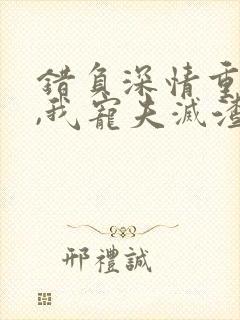 錯負深情重
,我寵夫滅渣
邢禮誠